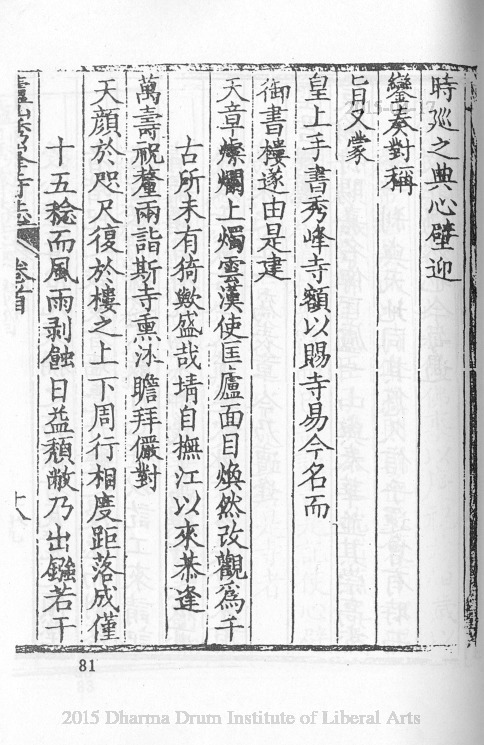 時廵之典心壁迎
鑾奏對稱
旨又蒙
皇上手書秀峰寺額以賜寺易今名而
御書樓遂由是建
天章燦爛上燭雲漢使匡廬面目煥然改觀爲千
古所未有猗歟盛哉堉自撫江以來恭逢
萬壽祝釐兩詣斯寺熏沐瞻拜儼對
天顔於咫尺復於樓之上下周行相度距落成僅
十五稔而風雨剥蝕日益頽敝乃出鏹若干
卷首
十八
81
2015 Dharma Drum Institute of Liberal Arts